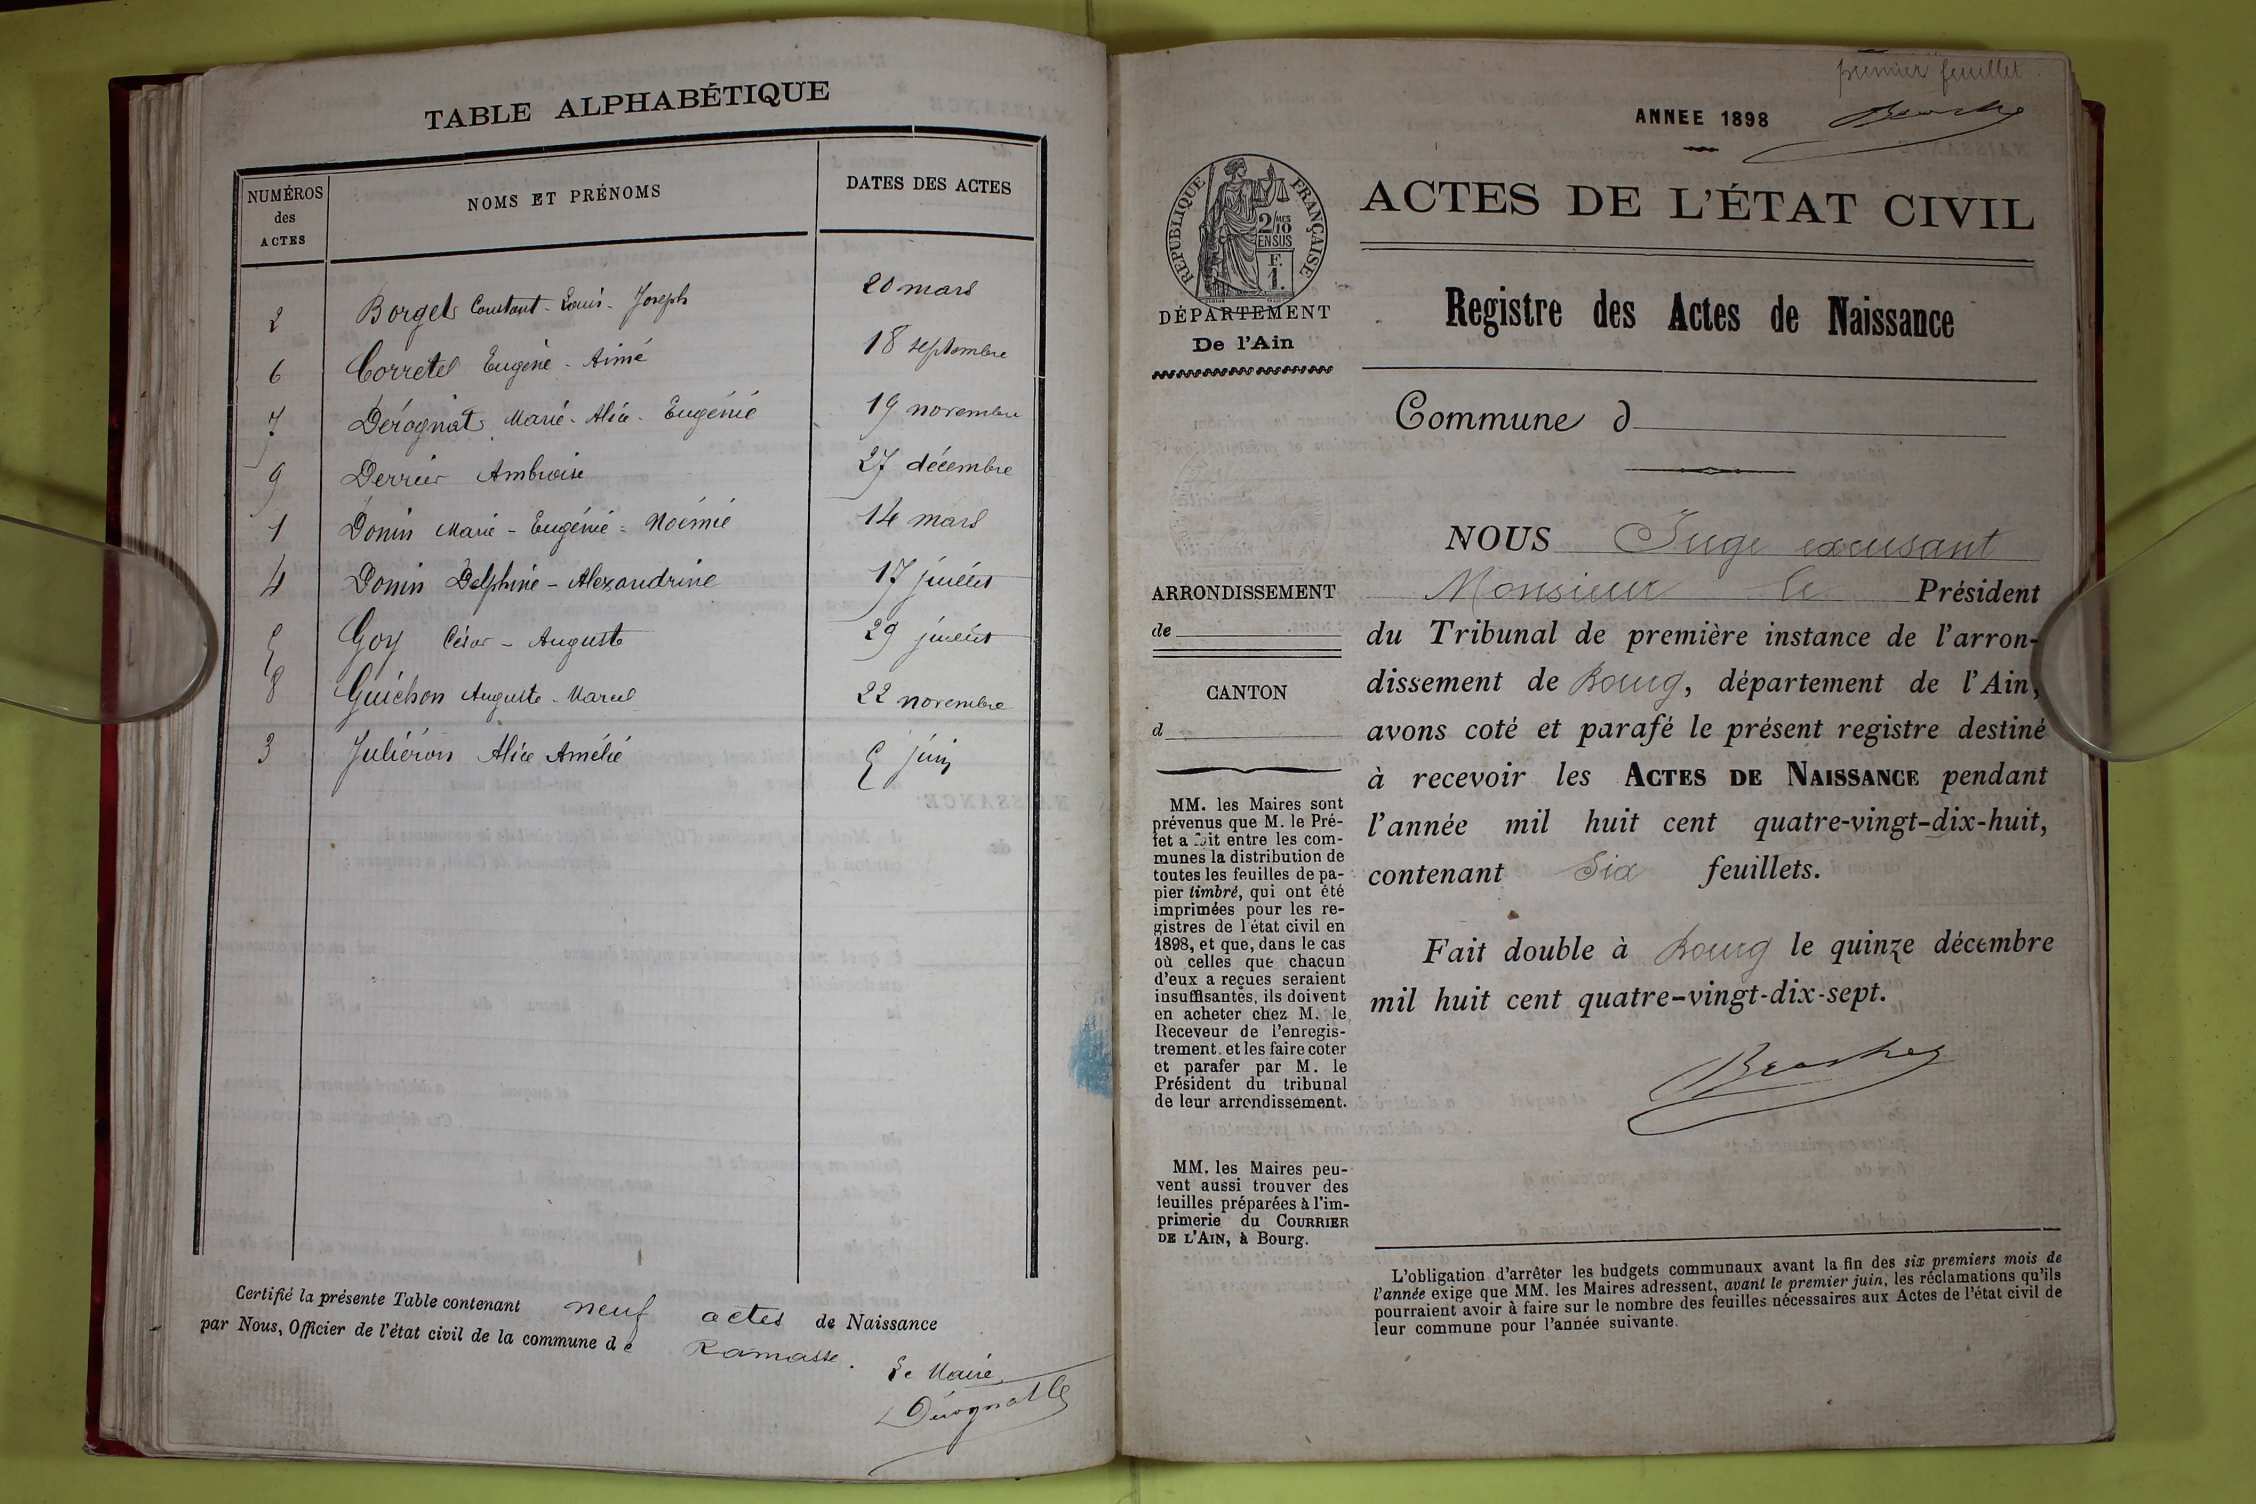 TABLE ALPHABÉTIQUE
NUMÉROS
des
ACTES
NOMS ET PRÉNOMS
DATES DES ACTES
2 Borget Constant - Louis - Joseph 20 mars
6 Corretel Eugène - Aimé 18 septembre
7 Dérognat Marie - Alice - Eugénie 19 novembre
9 Perrier Ambroise 27 décembre
1 Donin Marie - Eugénie - Noémie 14 mars
4 Donin Delphine - Alexandrine 17 juillet
5 Goy César - Auguste 29 juillet
8 Guichon Auguste - Marcel 22 novembre
3 Juliéron Alice Amélie 5 juin
Certifié la présente Table contenant neuf actes de Naissance
par Nous, Officier de l'état civil de la commune de Ramasse.
Le Maire
Dérognat
premier feuillet
ANNEE 1898
RÉPUBLIQUE FRANÇAISE
2/10
EN SUS
F.
1.
DÉPARTEMENT
De l'Ain
ACTES DE L'ÉTAT CIVIL
Registre des Actes de Naissance
Commune d
NOUS Juge excusant
Monsieur le Président
du Tribunal de première instance de l'arron-
dissement de Bourg, département de l'Ain,
avons coté et parafé le présent registre destiné
à recevoir les ACTES DE NAISSANCE pendant
l'année mil huit cent quatre-vingt-dix-huit,
contenant Six feuillets.
Fait double à Bourg le quinze décembre
mil huit cent quatre-vingt-dix-sept.
ARRONDISSEMENT
de
CANTON
d
MM. les Maires sont
prévenus que M. le Pré-
fet a fait entre les com-
munes la distribution de
toutes les feuilles de pa-
pier timbré, qui ont été
imprimées pour les re-
gistres de l'état civil en
1898, et que, dans le cas
où celles que chacun
d'eux a reçues seraient
insuffisantes, ils doivent
en acheter chez M. le
Receveur de l'enregis-
trement. et les faire coter
et parafer par M. le
Président du tribunal
de leur arrondissement.
MM. les Maires peu-
vent aussi trouver des
feuilles préparées à l'im-
primerie du COURRIER
DE L'AIN, à Bourg.
L'obligation d'arrêter les budgets communaux avant la fin des six premiers mois de
l'année exige que MM. les Maires adressent, avant le premier juin, les réclamations qu'ils
pourraient avoir à faire sur le nombre des feuilles nécessaires aux Actes de l'état civil de
leur commune pour l'année suivante.